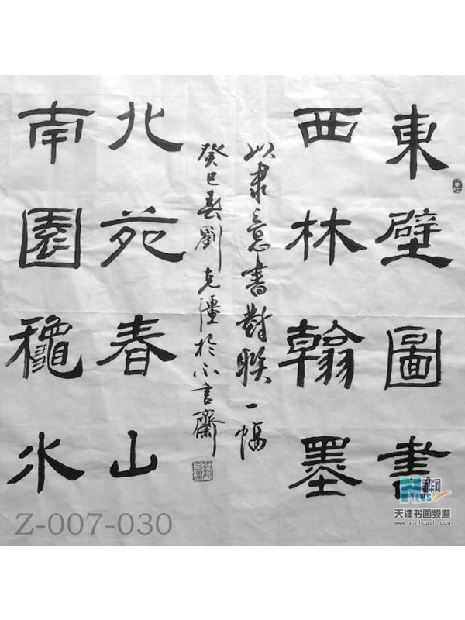 東壁圖書
西林翰墨
以隶意書對聯一幅
癸巳春劉克
於不言齋
北苑春山
南園龝水
Z-007-030
NEWS
天津书画频道